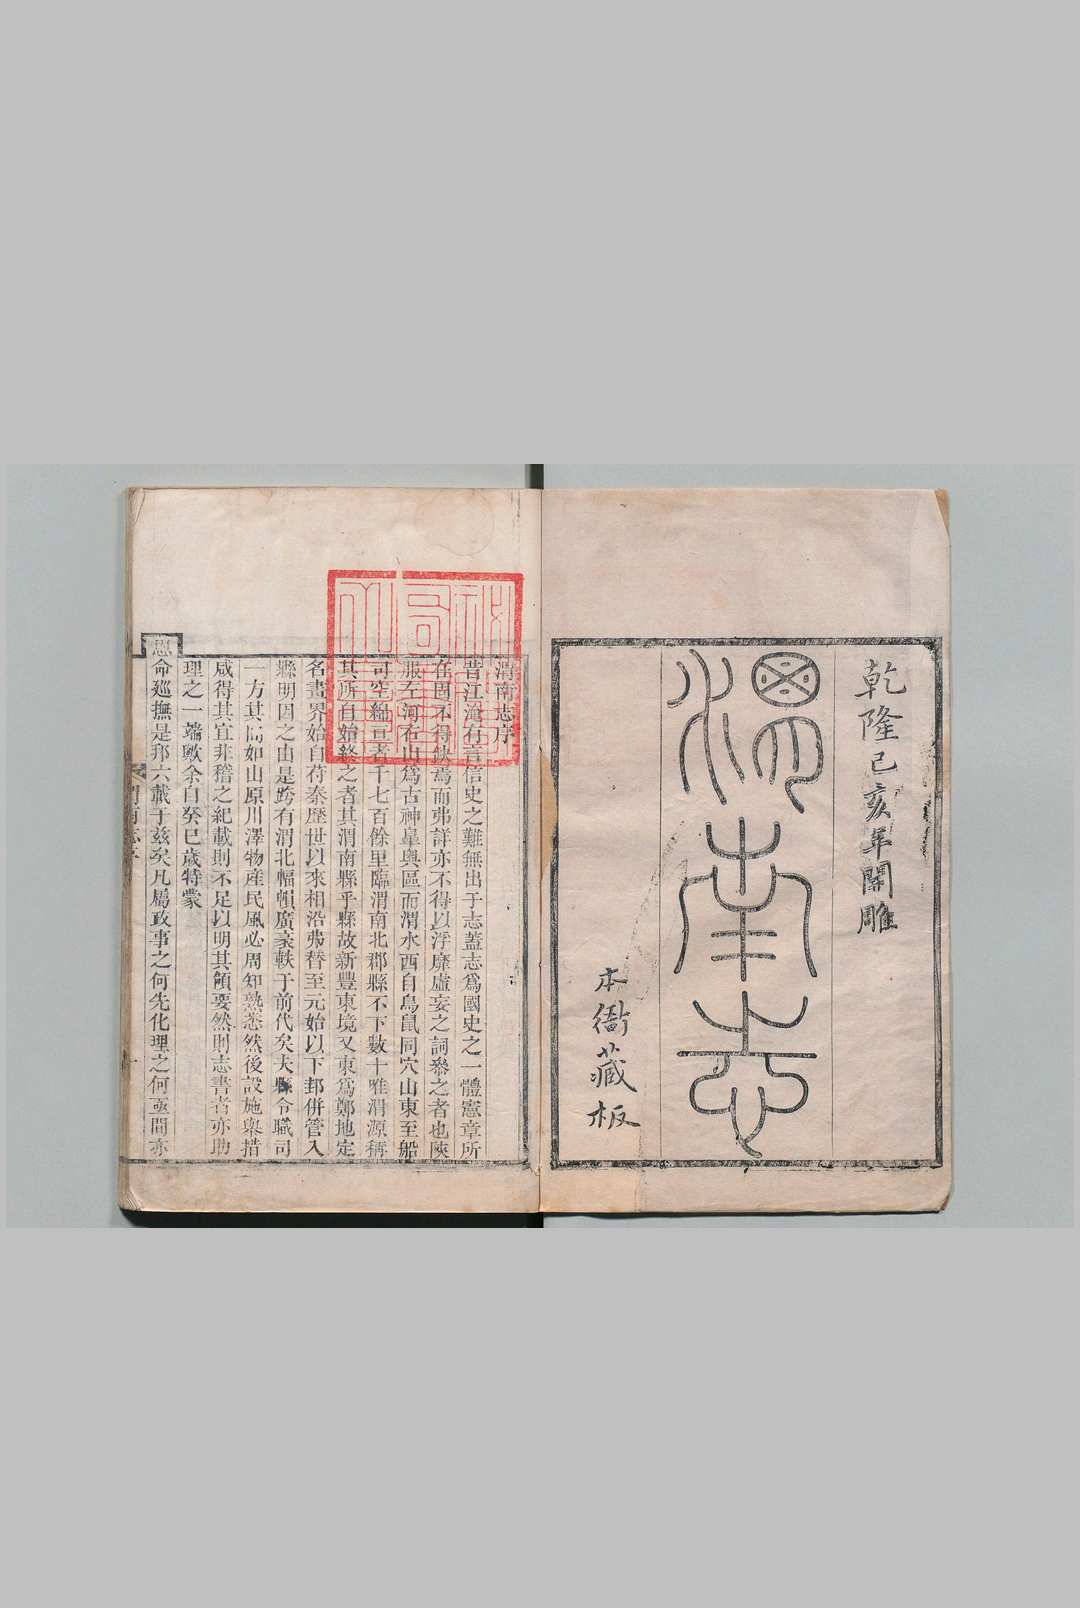 乾隆己亥年開雕
渭南志
本衙藏板
渭南志序
昔江淹有言信史之難無出于志蓋志爲國史之一體憲章所
在固不得缺焉而弗詳亦不得以浮靡虛妄之詞叅之者也陝
服左河右山爲古神臯輿區而渭水西自鳥鼠同穴山東至船
司空綿亘者千七百餘里臨渭南北郡縣不下數十唯渭源稱
其所自始終之者其渭南縣乎縣故新豐東境又東爲鄭地定
名畫界始自苻秦歷世以來相沿弗替至元始以下邽併管入
縣明因之由是跨有渭北幅幀廣袤軼于前代矣夫縣令職司
一方其間如山原川澤物產民風必周知熟悉然後設施舉措
咸得其宜非稽之紀載則不足以明其領要然則志書者亦助
理之一端歟余自癸巳歲特蒙
恩命廵撫是邦六載于兹矣凡屬政事之何先化理之何亟間亦